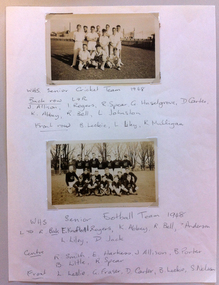 WHS Senior Cricket Team 1968
Back row L to R
J. Allison, I. Rogers, K. Spicer G. Haselgrove, D. Carter,
K. Abbey, R. Bell, L. Johnston
Front row B Leslie, L. Sibey, R. Mulligan
WHS Senior Football Team 1968
L to R Back E. Rogers, K. Abbey, R. Bell, T Anderson
L. Sibey, D. Jack
Centre K. Smith, J. Allison, B. Porter
B. Little K. Spicer
Front L. Leslie, C. Fraser, D. Carter, B Leslie, S. Nelson